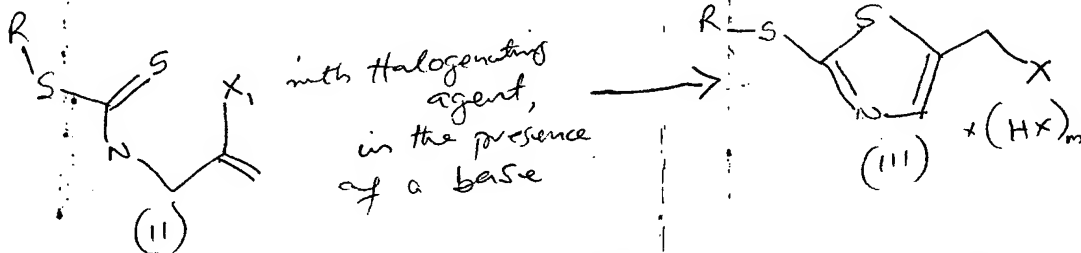 R
S
S
X₁
N
(II)
with Halogenating
agent,
in the presence
of a base
R
S
S
N
X
x (HX)m
(III)